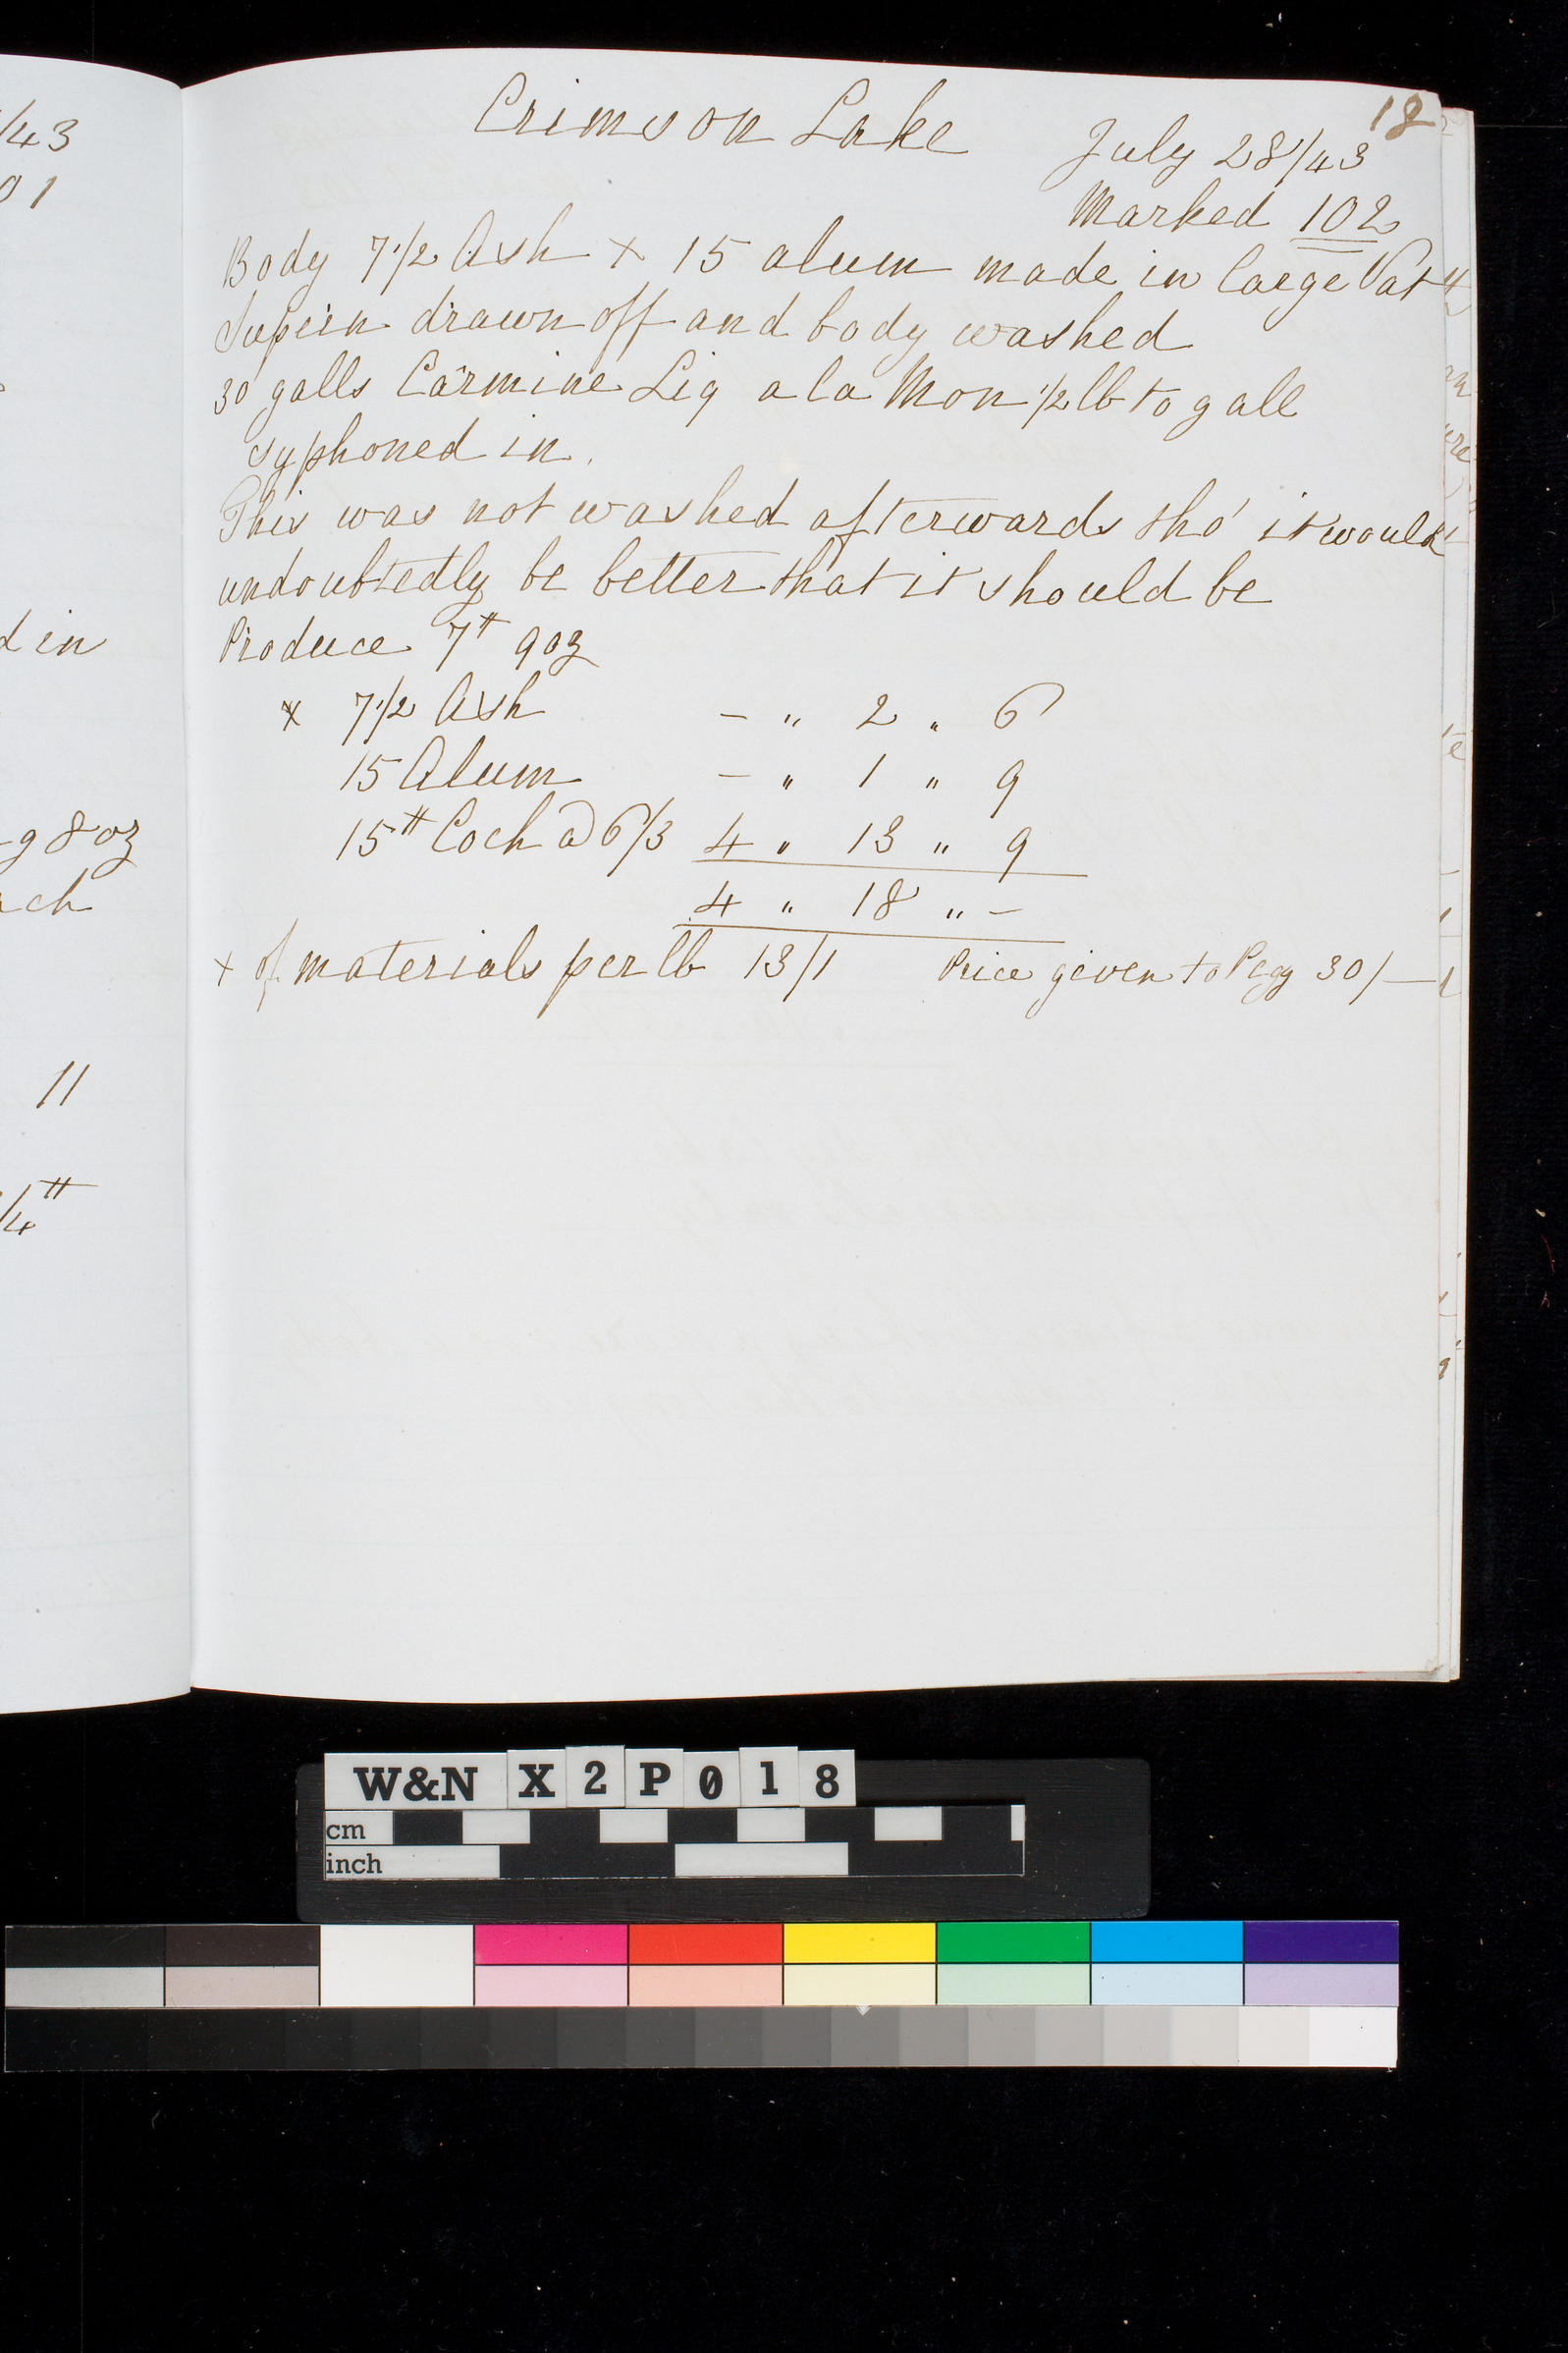 18
Crimson Lake
July 28/43
Marked 102
Body 7 1/2 Ash + 15 alum made in large Vat
Supern drawn off and body washed
30 galls Carmine Liq a la Mon 1/2 lb to gall
syphoned in.
This was not washed afterwards tho' it would
undoubtedly be better that it should be
Produce 7# 9oz
x 7 1/2 Ash - " 2 " 6
15 Alum - " 1 " 9
15# Coch @ 6/3 4 " 13 " 9
4 " 18 " -
+ of materials per lb 13/1 Price given to Pegg 30/-
/43
01
d in
g 8 oz
ch
11
/4#
W&N X2P018
cm
inch